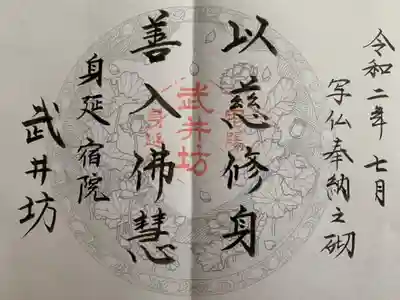 令和二年 七月
写仏奉納之砌
以慈修身
善入佛慧
身延 宿院
武井坊
武井坊
身延